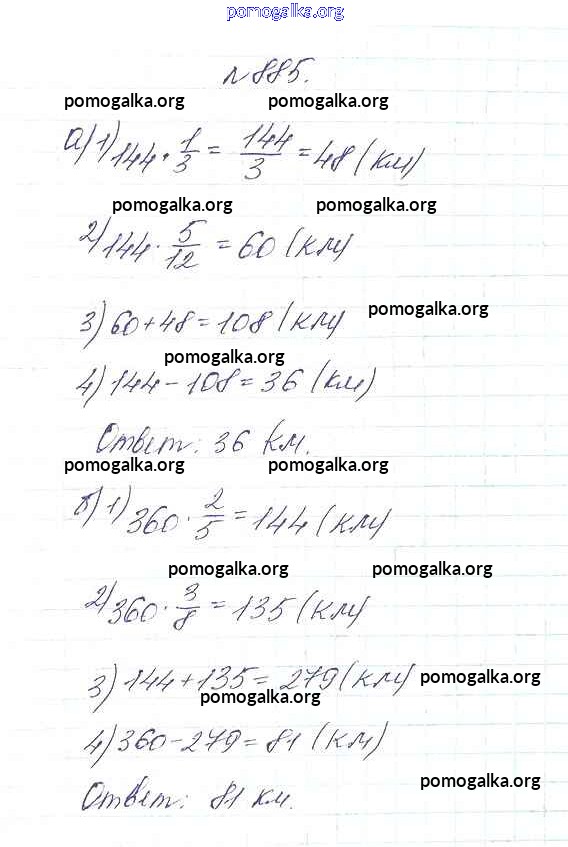 pomogalka.org
№885.
pomogalka.org pomogalka.org
а) 1) 144 · 1/3 = 144/3 = 48 (км)
pomogalka.org pomogalka.org
2) 144 · 5/12 = 60 (км)
3) 60 + 48 = 108 (км) pomogalka.org
pomogalka.org
4) 144 - 108 = 36 (км)
Ответ: 36 км.
pomogalka.org pomogalka.org
б) 1) 360 · 2/5 = 144 (км)
pomogalka.org pomogalka.org
2) 360 · 3/8 = 135 (км)
3) 144 + 135 = 279 (км) pomogalka.org
pomogalka.org
4) 360 - 279 = 81 (км)
pomogalka.org
Ответ: 81 км.